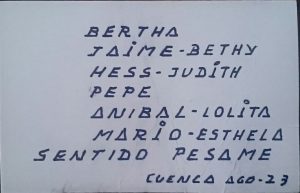 BERTHA
JAiME-BETHY
HESS-JUDiTH
PEPE
ANiBAL-LOLiTA
MARiO-ESTHELA
SENTIDO PESAME
CUENCA AGO-23